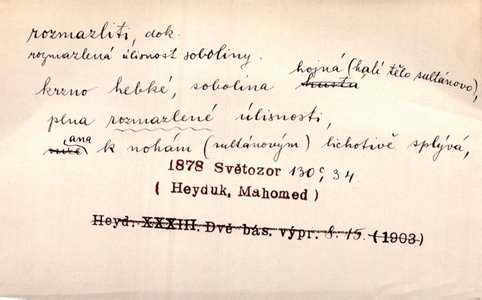 rozmazliti, dok.
rozmazlená úlisnost soboliny.
hojná (halí tělo sultánovo),
krzno hebké, sobolina hustá
plna rozmazlené úlisnosti,
ana
k nohám (sultánovým) lichotivě splývá,
1878 Světozor 130c, 34
( Heyduk, Mahomed )
Heyd. XXXIII. Dvě bás. výpr. 8. 15. (1903)